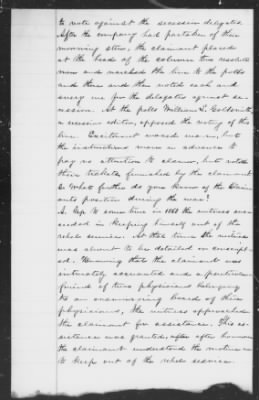 to vote against the secession delegates
After the company had partaken of their
morning stew, the claimant placed
at the head of the column two resolute
men and marched the line to the polls
and there and then voted each and
every one for the delegates against se-
cession. At the polls William L. Goldsmith,
a secession editor, opposed the voting of this
line. Excitement waxed warm, but
the instructions were in advance to
pay no attention to clamor, but voted
their tickets furnished by the claimant
Q. What further do you know of the Claim-
ants position during the war?
A. Up to some time in 1863 the witness suc-
ceeded in keeping himself out of the
rebels service. At this time the witness
was about to be detailed or conscript-
ed. Knowing that the claimant was
intimately acquainted and a particular
friend of two physicians belonging
to an examining board of their
physicians, the witness approached
the claimant for assistance. This as-
sistance was granted, after
the claimant understood the
to keep out of the rebels service